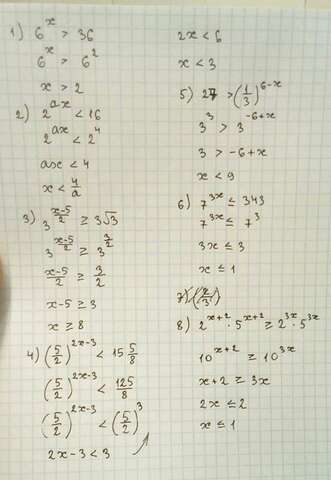 1) 6^x > 36
6^x > 6^2
x > 2
2) 2^{ax} < 16
2^{ax} < 2^4
ax < 4
x < \frac{4}{a}
3) 3^{\frac{x-5}{2}} ≥ 3√3
3^{\frac{x-5}{2}} ≥ 3^{\frac{3}{2}}
\frac{x-5}{2} ≥ \frac{3}{2}
x-5 ≥ 3
x ≥ 8
4) (\frac{5}{2})^{2x-3} < 15\frac{5}{8}
(\frac{5}{2})^{2x-3} < \frac{125}{8}
(\frac{5}{2})^{2x-3} < (\frac{5}{2})^3
2x-3 < 3
2x < 6
x < 3
5) 27 > (\frac{1}{3})^{6-x}
3^3 > 3^{-6+x}
3 > -6+x
x < 9
6) 7^{3x} ≤ 343
7^{3x} ≤ 7^3
3x ≤ 3
x ≤ 1
7)
8) 2^{x+2} · 5^{x+2} ≥ 2^{3x} · 5^{3x}
10^{x+2} ≥ 10^{3x}
x+2 ≥ 3x
2x ≤ 2
x ≤ 1